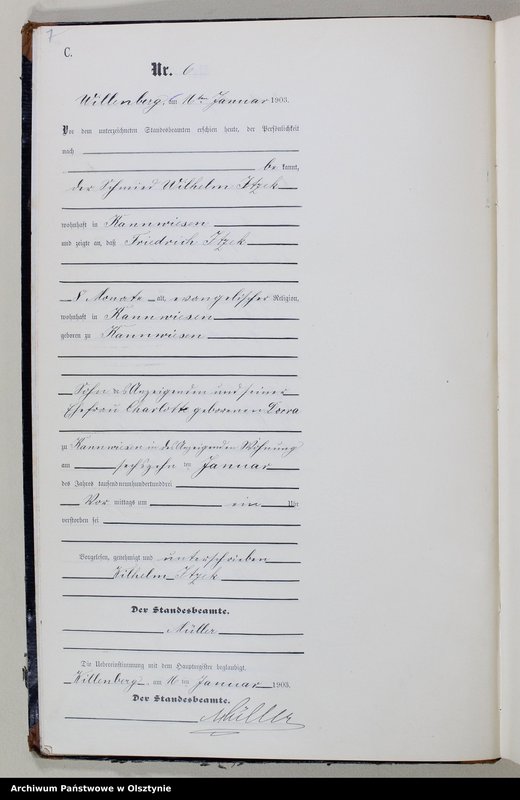 7
C.
Nr. 6
Willenberg, am 16ten Januar 1903.
Vor dem unterzeichneten Standesbeamten erschien heute, der Persönlichkeit
nach
be kannt,
der Schmied Wilhelm Itzek
wohnhaft in Kannwiesen
und zeigte an, daß Friedrich Itzek
8 Monate alt, evangelischer Religion,
wohnhaft in Kannwiesen
geboren zu Kannwiesen
Sohn des Anzeigenden und seiner
Ehefrau Charlotte geborenen
zu Kannwiesen in des Anzeigenden Wohnung
am sechszehn ten Januar
des Jahres tausendneunhundertunddrei
Vor mittags um ein Uhr
verstorben sei
Vorgelesen, genehmigt und unterschrieben
Wilhelm Itzek
Der Standesbeamte.
Müller
Die Uebereinstimmung mit dem Hauptregister beglaubigt.
Willenberg, am 16 ten Januar 1903.
Der Standesbeamte.
Müller
Archiwum Państwowe w Olsztynie